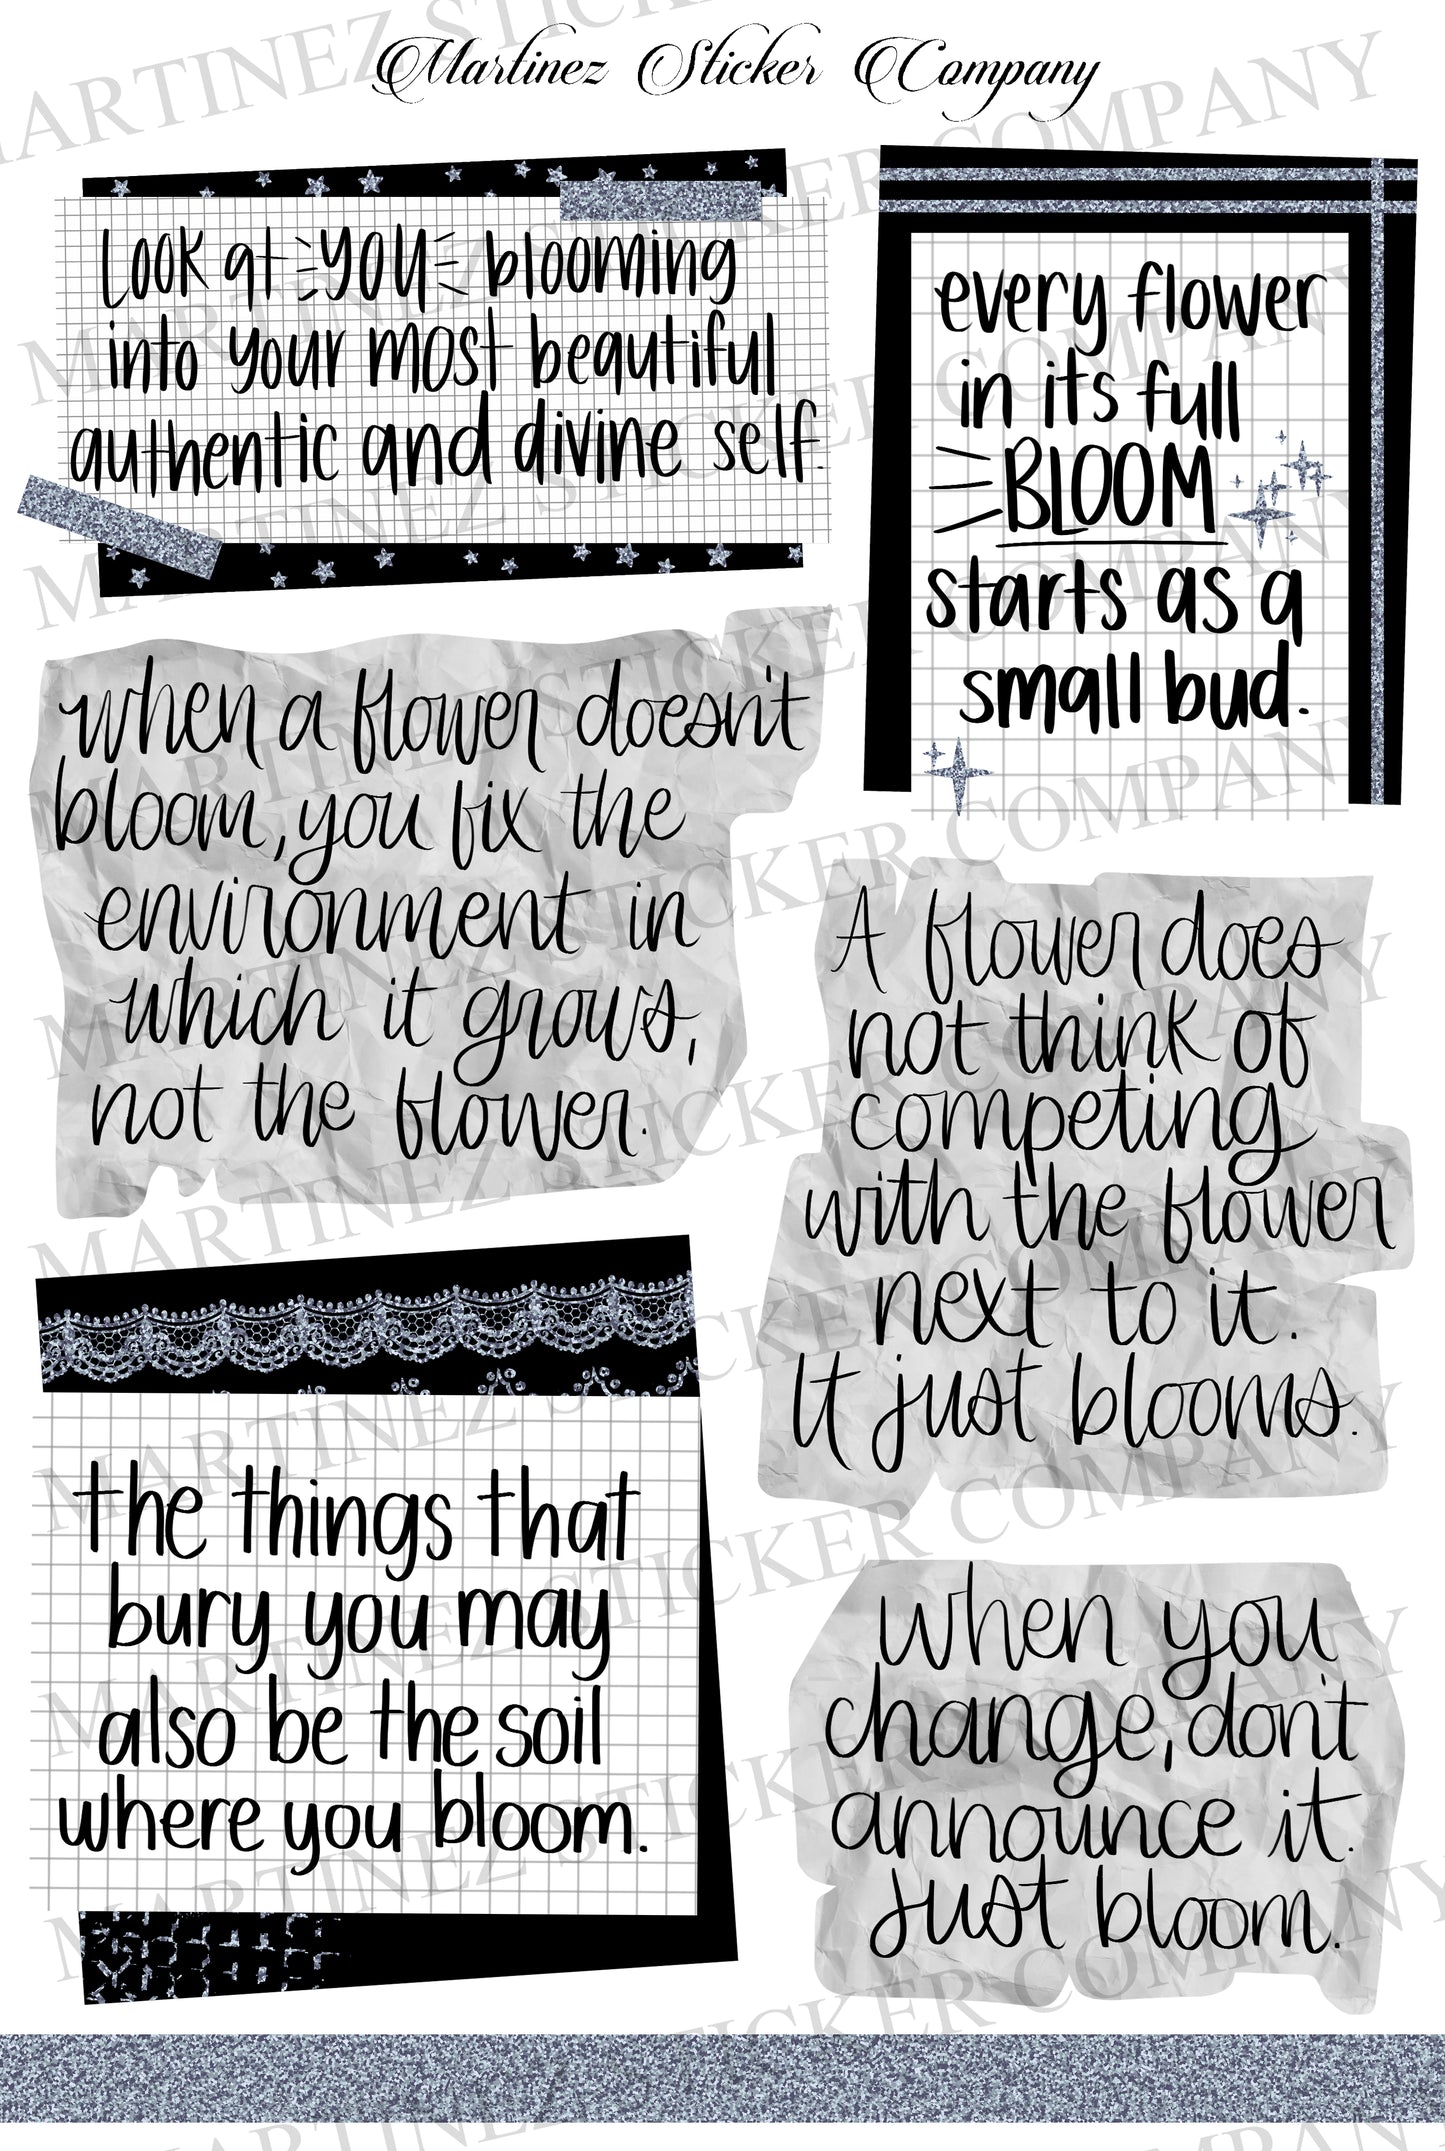 Martinez Sticker Company
Look at YOU blooming
into your most beautiful
authentic and divine self.
every flower
in its full
BLOOM
starts as a
small bud.
when a flower doesn't
bloom, you fix the
environment in
which it grows,
not the flower.
A flower does
not think of
competing
with the flower
next to it.
It just blooms.
the things that
bury you may
also be the soil
where you bloom.
when you
change, don't
announce it.
Just bloom.
MARTINEZ STICKER COMPANY
MARTINEZ STICKER COMPANY
MARTINEZ STICKER COMPANY
MARTINEZ STICKER COMPANY
MARTINEZ STICKER COMPANY
MARTINEZ STICKER COMPANY
MARTINEZ STICKER COMPANY
MARTINEZ STICKER COMPANY